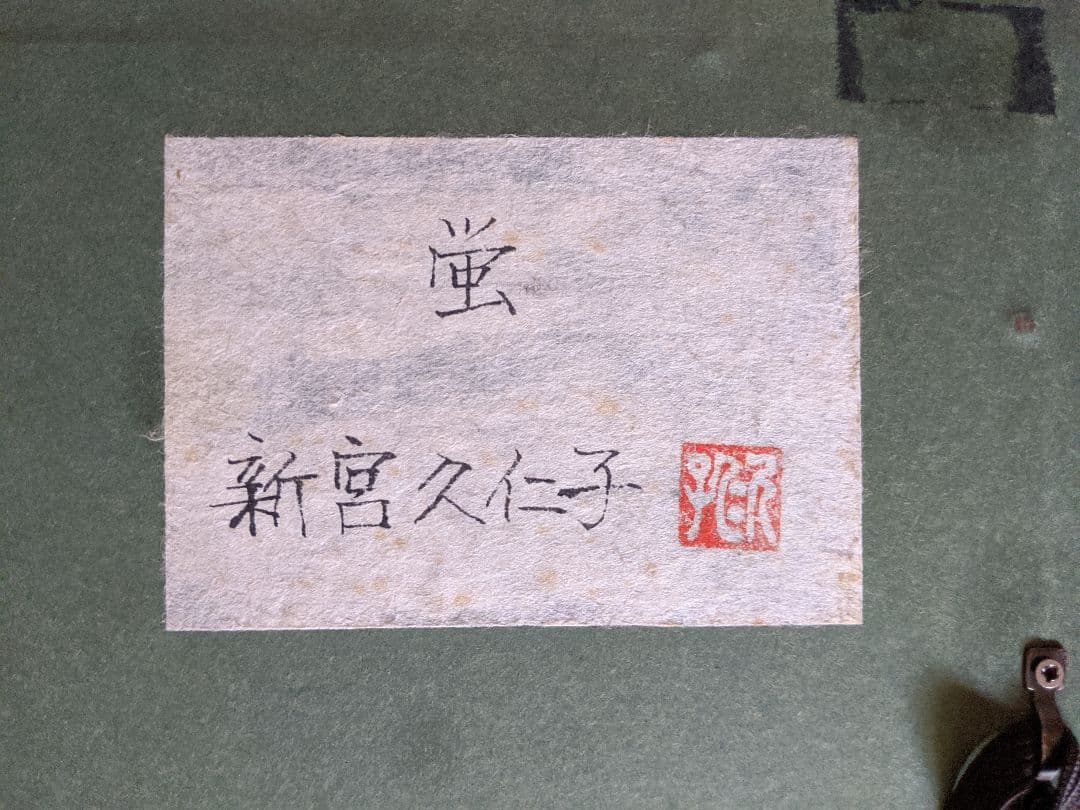 蛍
新宮久仁子